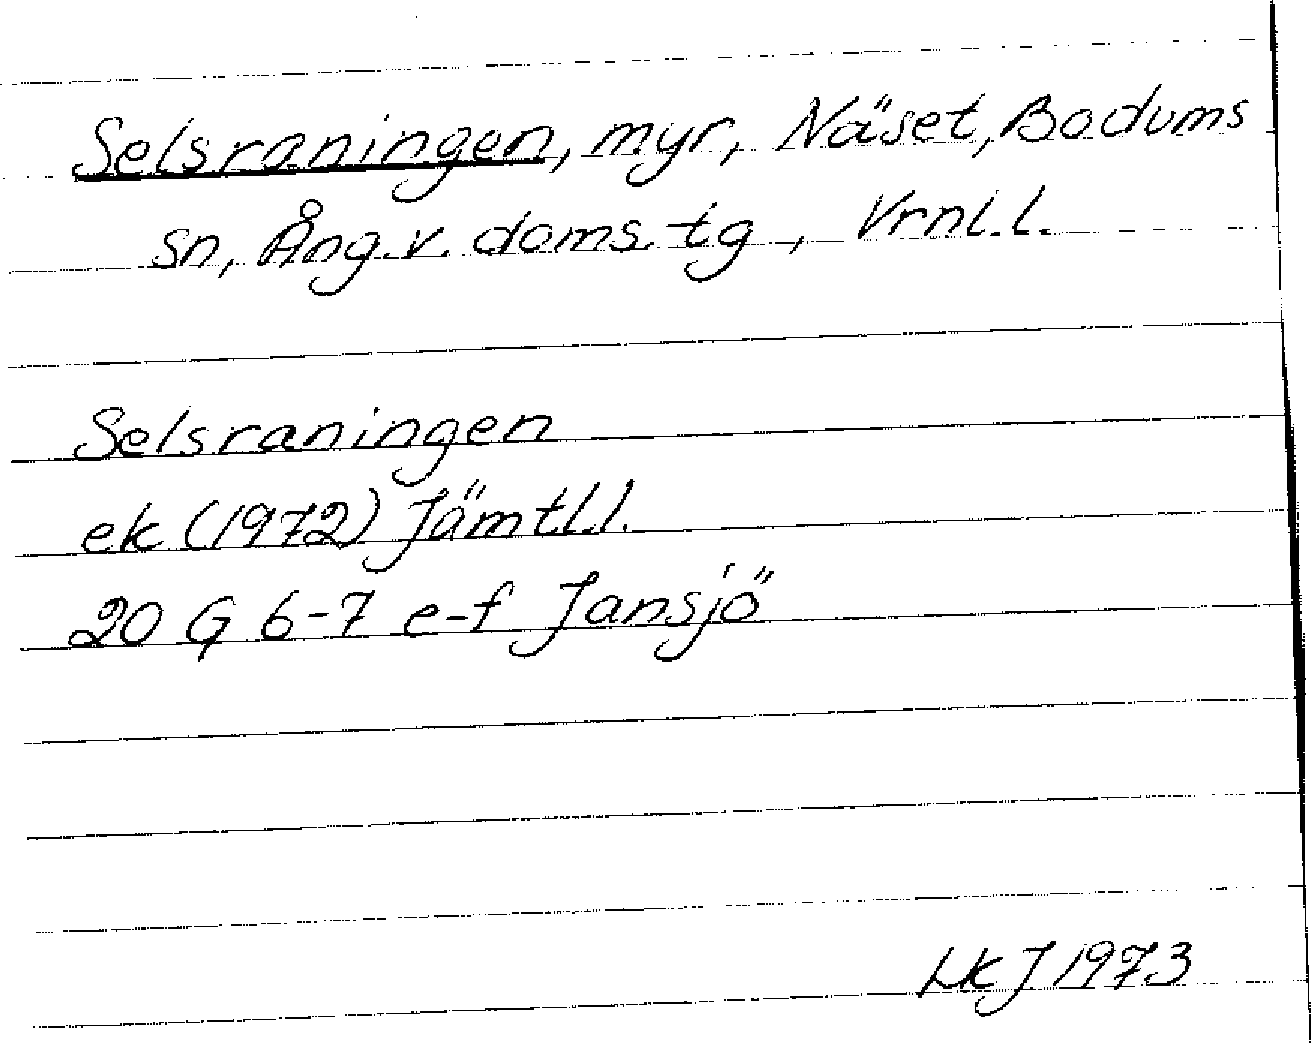 Selsraningen, myr, Näset, Bodums
sn, Ång. v. doms. tg, Vrnl. l.
Selsraningen
ek (1972) Jämtl l.
20 G 6-7 e-f Jansjö
LKJ 1973